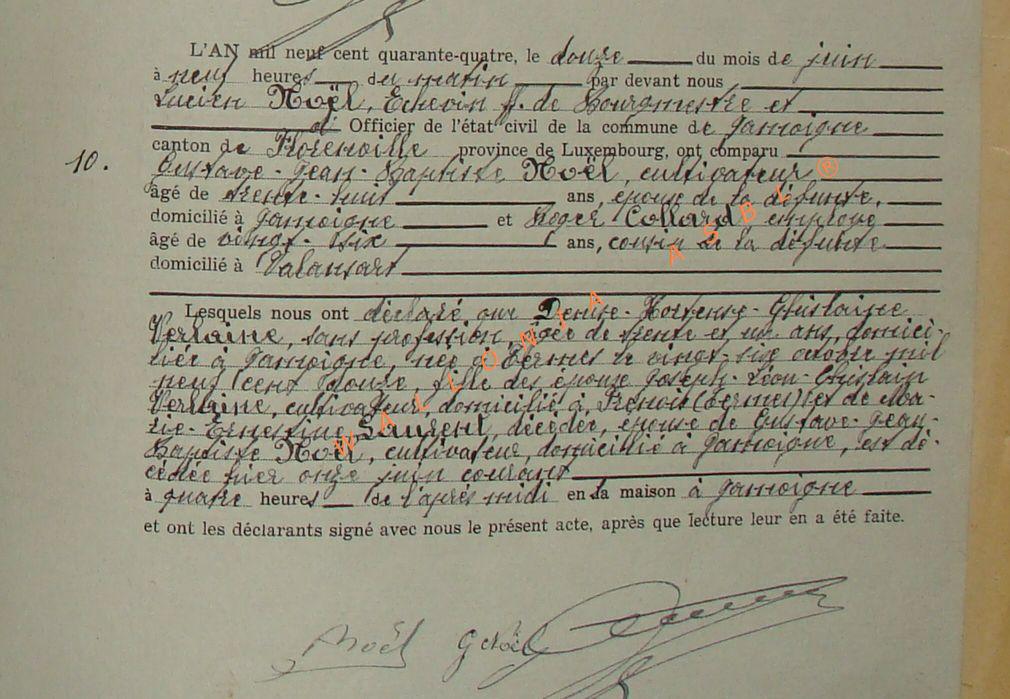 L'AN mil neuf cent quarante-quatre, le douze du mois de juin
à neuf heures du matin par devant nous
Lucien Noël, Echevin ff. de Bourgmestre et
d' Officier de l'état civil de la commune de Jamoigne
canton de Florenville province de Luxembourg, ont comparu
10. Gustave-Jean-Baptiste Noël, cultivateur
âgé de trente-huit ans, époux de la défunte,
domicilié à Jamoigne et Roger Collard employé
âgé de vingt-six ans, cousin de la défunte
domicilié à Valansart
Lesquels nous ont déclaré que Denise-Hortense-Ghislaine
Verlaine, sans profession, âgée de trente et un ans, domici-
liée à Jamoigne, née à Termes le vingt-six octobre mil
neuf cent douze, fille des époux Joseph-Léon-Ghislain
Verlaine, cultivateur, domicilié à Frenois (Termes) et de Ma-
rie-Ernestine Laurent, décédée, épouse de Gustave-Jean-
Baptiste Noël, cultivateur, domicilié à Jamoigne, est dé-
cédée hier onze juin courant
à quatre heures de l'après midi en sa maison à Jamoigne
et ont les déclarants signé avec nous le présent acte, après que lecture leur en a été faite.
WALLONIA ASBL ®
Noël G Noël